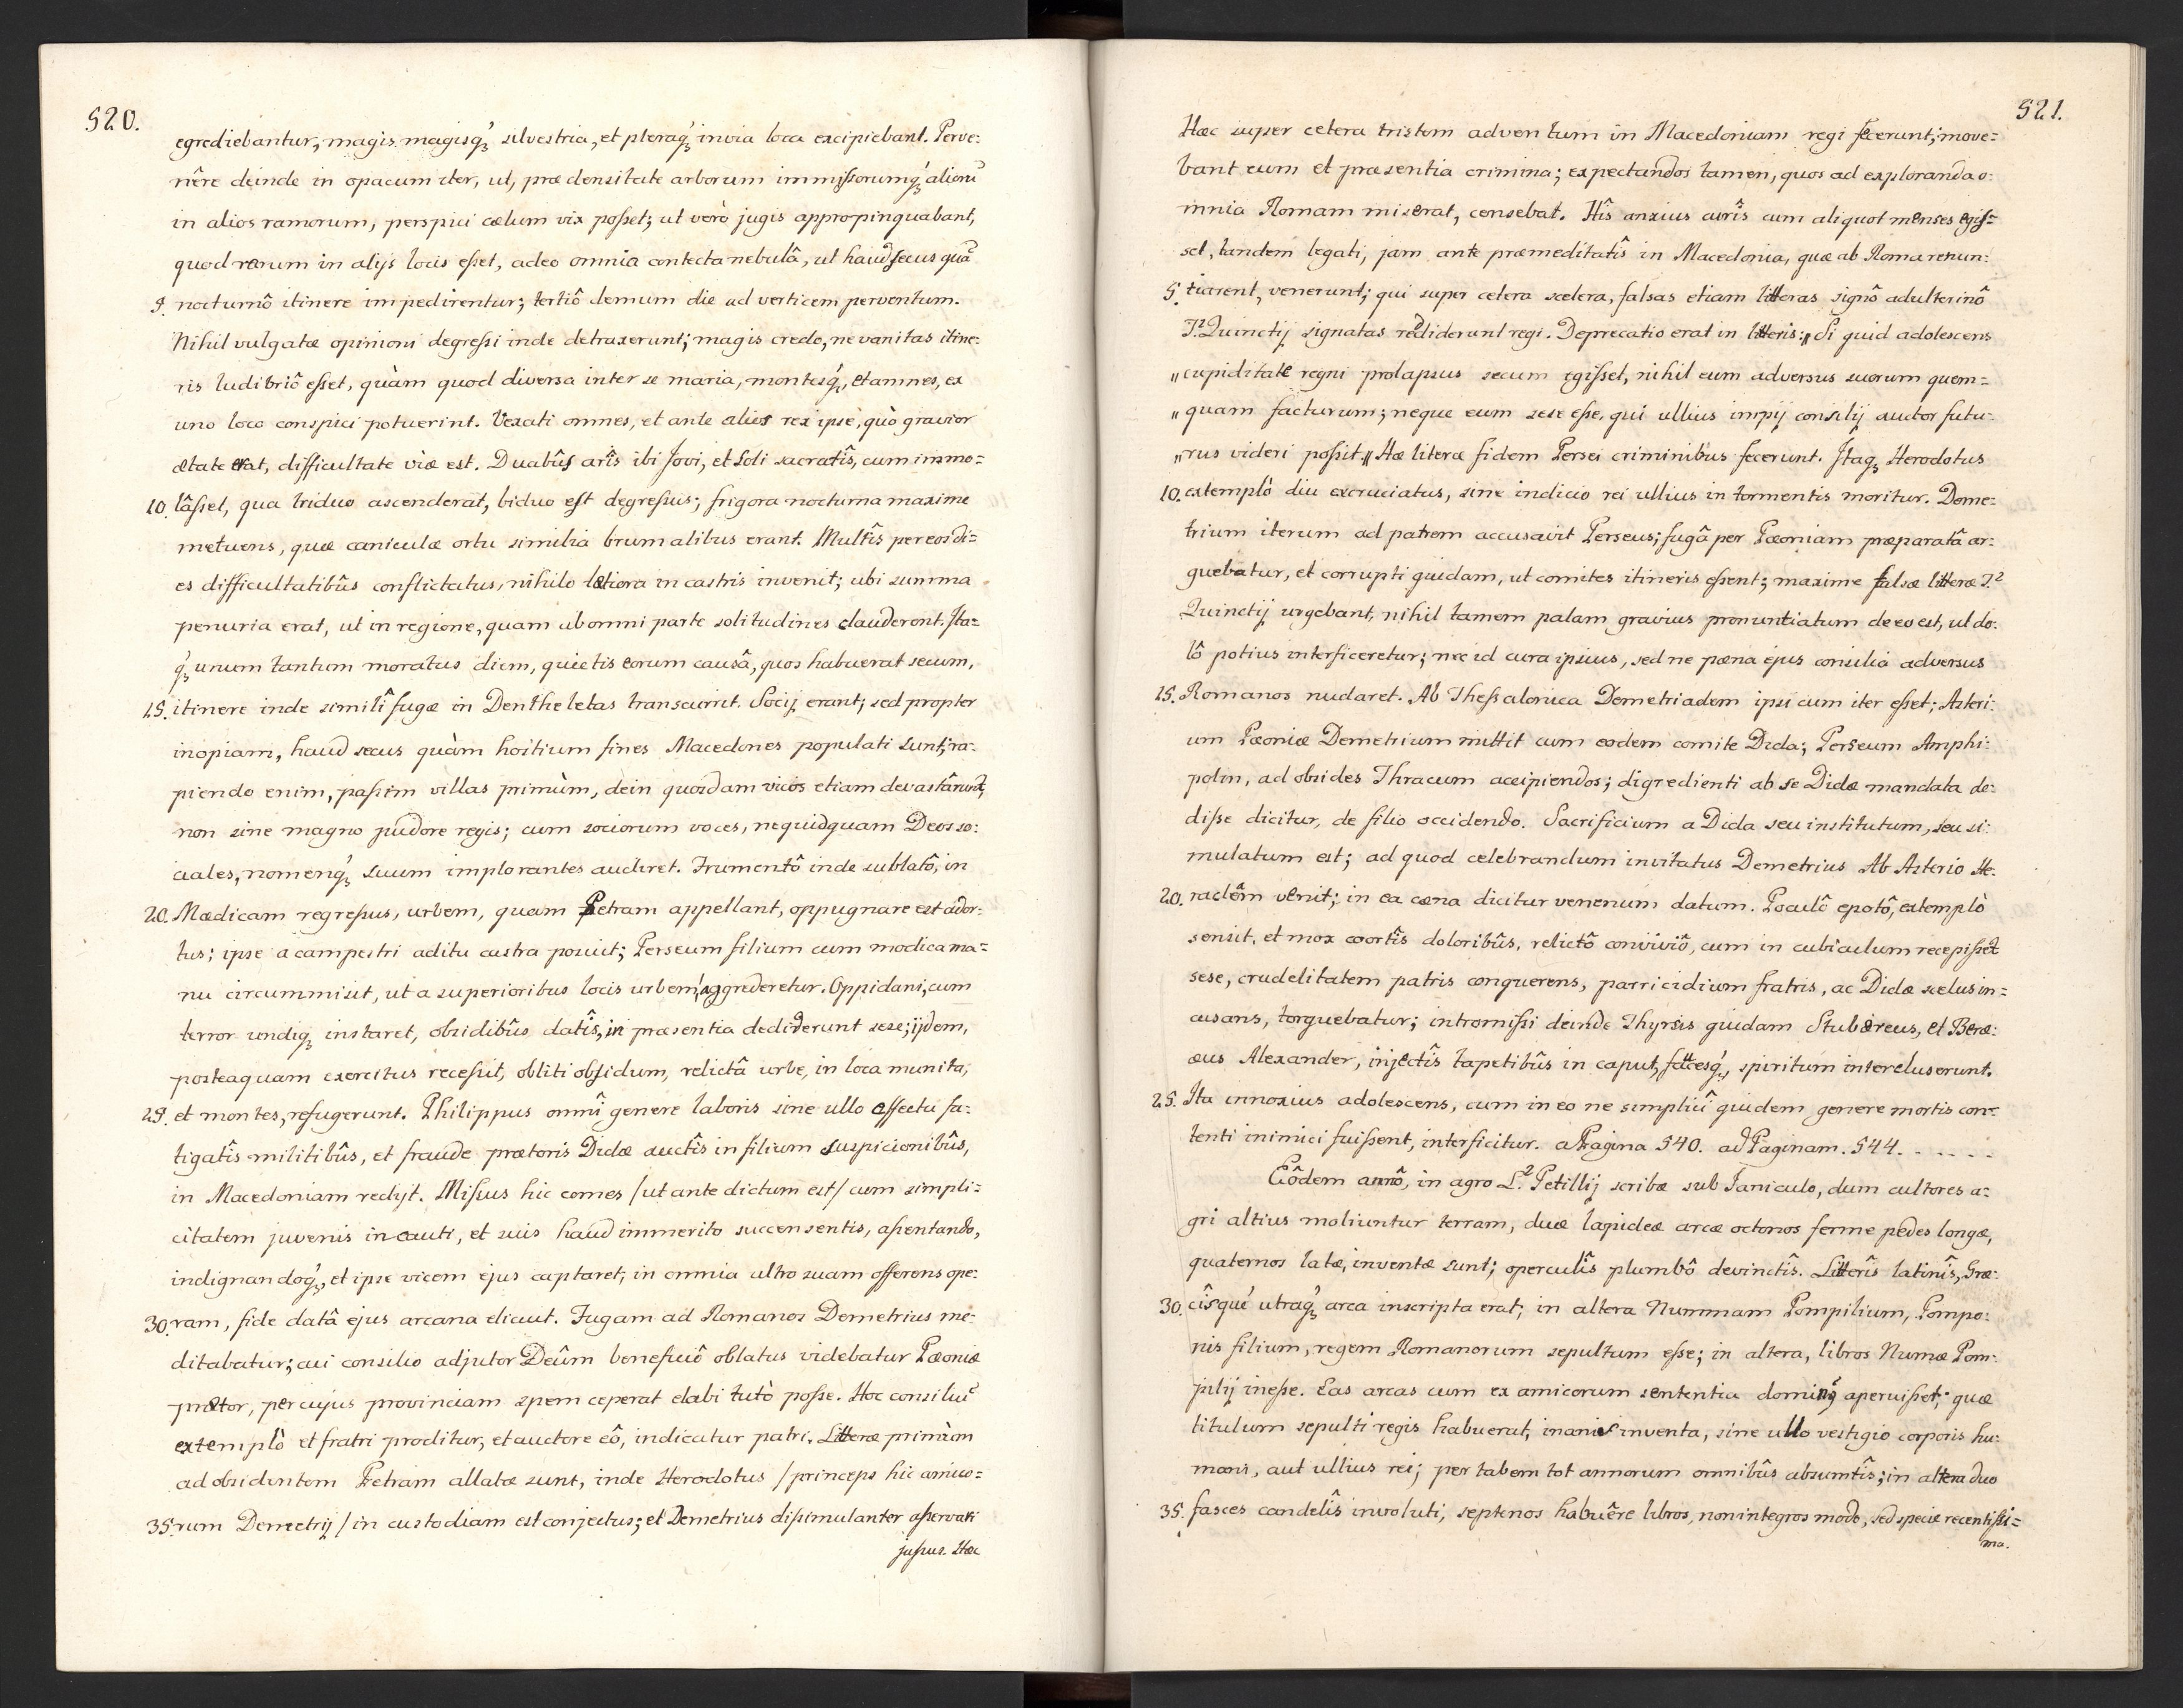 520.
egrediebantur, magis magisq́₃ silvestria, et pleraq́₃ invia loca excipiebant. Perve:
nêre deinde in opacum iter, ut, præ densitate arborum immissorumq́₃ aliorũ
in alios ramorum, perspici cælum vix posset; ut verò jugis appropinquabant,
quod rarum in alijs locis esset, adeo omnia contecta nebulâ, ut haud secus quã
5. nocturnô itinere impedirentur; tertiô demum die ad verticem perventum.
Nihil vulgatæ opinioni degressi inde detraxerunt; magis credo, ne vanitas itine:
ris ludibriô esset, quàm quod diversa inter se maria, montesq́₃, et amnes, ex
uno loco conspici potuerint. Vexati omnes, et ante alios rex ipse, quò gravior
ætate erat, difficultate viæ est. Duabûs arîs ibi Jovi, et Soli sacratîs, cum immo=
10. lâsset, qua triduo ascenderat, biduo est degressus; frigora nocturna maxime
metuens, quæ caniculæ ortu similia brumalibus erant. Multîs per eos di=
es difficultatibûs conflictatus, nihilo lætiora in castris invenit; ubi summa
penuria erat, ut in regione, quam ab omni parte solitudines clauderent. Ita=
q́₃ unum tantum moratus diem, quietis eorum causâ, quos habuerat secum,
15. itinere inde similî fugæ in Dentheletas transcurrit. Socij erant; sed propter
inopiam, haud secus quàm hostium fines Macedones populati sunt; ra:
piendo enim, passim villas primùm, dein quosdam vicos etiam devastârunt,
non sine magno pudore regis; cum sociorum voces, nequidquam Deos so:
ciales, nomenq́₃ suum implorantes audiret. Frumentô inde sublatô, in
20. Mædicam regressus, urbem, quam Petram appellant, oppugnare est ador:
tus; ipse a campestri aditu castra posuit; Perseum filium cum modica ma=
nu circummisit, ut a superioribus locis urbem aggrederetur. Oppidani, cum
terror undiq₃ instaret, obsidibûs datîs, in præsentia dediderunt sese; ijdem,
posteaquam exercitus recessit, obliti obsidum, relictâ urbe, in loca munita,
25. et montes, refugerunt. Philippus omnî genere laboris sine ullo effectu fa:
tigatîs militibûs, et fraude prætoris Didæ auctîs in filium suspicionibûs,
in Macedoniam redijt. Missus hic comes /ut ante dictum est/ cum simpli=
citatem juvenis incauti, et suis haud immerito succensentis, assentando,
indignandoq́₃, et ipse vicem ejus captaret; in omnia ultro suam offerens ope:
30. ram, fide datâ ejus arcana elicuit. Fugam ad Romanos Demetrius me:
ditabatur; cui consilio adjutor Deûm beneficiô oblatus videbatur Pæoniæ
prætor, per cujus provinciam spem ceperat elabi tutò posse. Hoc consiliũ
extemplò et fratri proditur, et auctore eô, indicatur patri. Litteræ primùm
ad obsidentem Petram allatæ sunt, inde Herodotus /princeps hic amico=
35. rum Demetrij/ in custodiam est conjectus; et Demetrius dissimulanter asservari
jussus. Hæc
521.
Hæc super cetera tristem adventum in Macedoniam regi fecerunt; move=
bant eum et præsentia crimina; expectandos tamen, quos ad exploranda o:
mnia Romam miserat, censebat. Hîs anxius curîs cum aliquot menses egis=
set, tandem legati, jam ante præmeditatîs in Macedonia, quæ ab Roma renun:
5. tiarent, venerunt; qui super cetera scelera, falsas etiam litteras signô adulterinô
T.² Quinctij signatas reddiderunt regi. Deprecatio erat in litteris: „Si quid adolescens
„cupiditate regni prolapsus secum egisset, nihil eum adversus suorum quem=
„quam facturum; neque eum sese esse, qui ullius impij consilij auctor futu-
„rus videri possit.„ Hæ literæ fidem Persei criminibus fecerunt. Itaq₃ Herodotus
10. extemplò diu excruciatus, sine indicio rei ullius in tormentis moritur. Deme:
trium iterum ad patrem accusavit Perseus; fugâ per Pæoniam præparatâ ar:
guebatur, et corrupti quidam, ut comites itineris essent; maxime falsæ litteræ T.²
Quinctij urgebant, nihil tamem palam gravius pronuntiatum de eo est, ut do:
lô potius interficeretur; nec id cura ipsius, sed ne pœna ejus consilia adversus
15. Romanos nudaret. Ab Thessalonica Demetriadem ipsi cum iter esset; Asteri:
um Pæoniæ Demetrium mittit cum eodem comite Dida; Perseum Amphi:
polin, ad obsides Thracum accipiendos; digredienti ab se Didæ mandata de:
disse dicitur, de filio occidendo. Sacrificium a Dida seu institutum, seu si:
mulatum est; ad quod celebrandum invitatus Demetrius Ab Asterio He:
20. racleâm venit; in ea cæna dicitur venenum datum. Poculô epotô, extemplò
sensit, et mox coortîs doloribûs, relictô convîviô, cum in cubiculum recepisset
sese, crudelitatem patris conquerens, parricidium fratris, ac Didæ scelus in=
cusans, torquebatur; intromissi deinde Thyrsis quidam Stubæreus, et Beræ:
æus Alexander, injectîs tapetibûs in caput, faucesq́₃, spiritum intercluserunt.
25. Ita innoxius adolescens, cum in eo ne simplicî quidem genere mortis con=
tenti inimici fuissent, interficitur. a Pagina 540. ad Paginam. 544. . . . . .
Eôdem annô, in agro L.² Petillij scribæ sub Janiculo, dum cultores a=
gri altius moliuntur terram, duæ lapideæ arcæ octonos ferme pedes longæ,
quaternos latæ, inventæ sunt; operculîs plumbô devinctîs. Litterîs latinîs, Græ:
30. cîsqué utraq́₃ arca inscripta erat; in altera Nummam Pompilium, Pompo:
nis filium, regem Romanorum sepultum esse; in altera, libros Numæ Pom:
pilij inesse. Eas arcas cum ex amicorum sententia dominꝰ aperuisset; quæ
titulum sepulti regis habuerat, inanis inventa, sine ullo vestigio corporis hu:
mani, aut ullius rei; per tabem tot annorum omnibûs absumtîs; in altera duo
35. fasces candelîs involuti, septenos habuêre libros, non integros modo, sed specie recentissi=
ma.